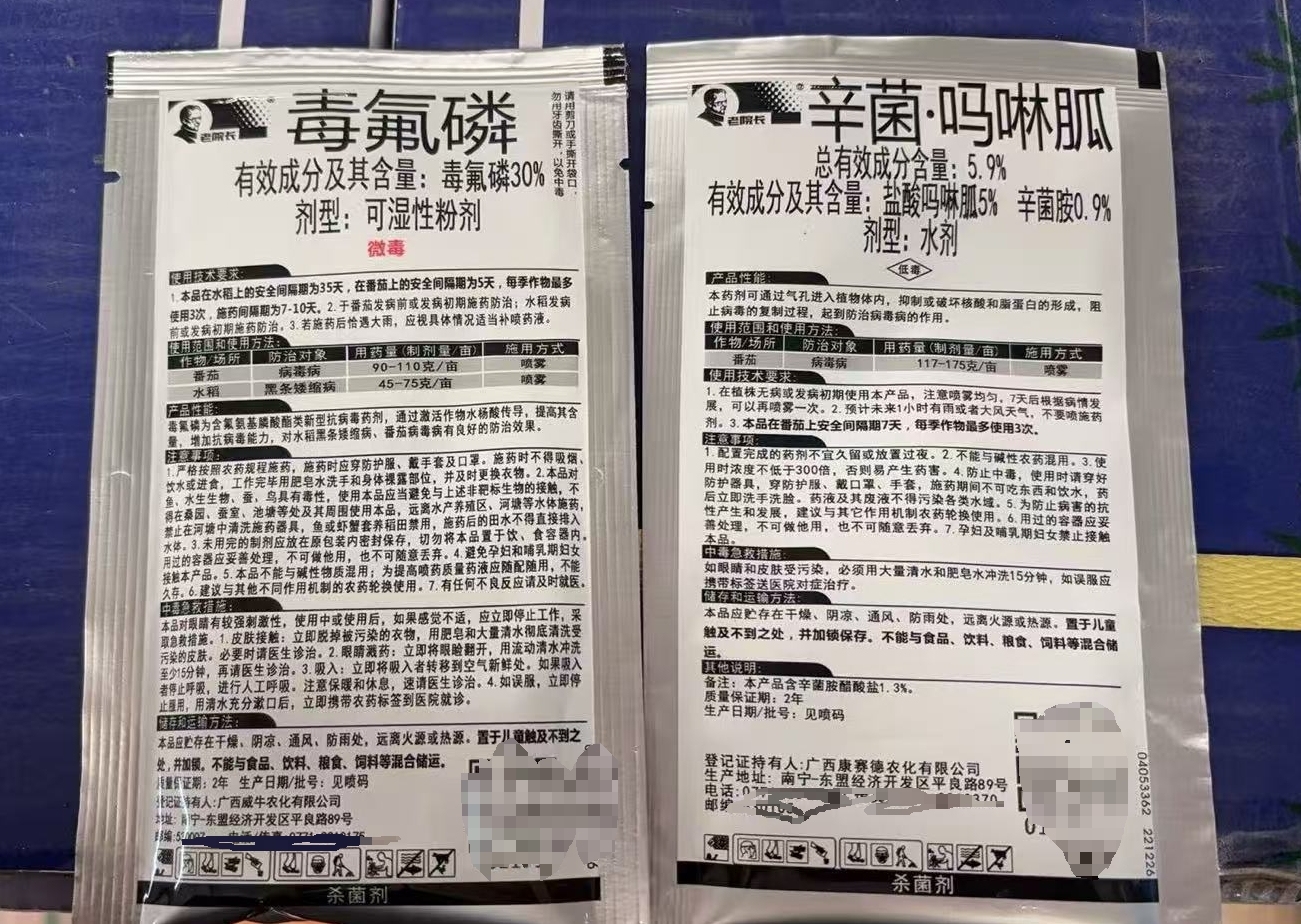 老院长
毒氟磷
请用剪刀或手撕开袋口，
勿用牙齿撕开，以免中毒
有效成分及其含量：毒氟磷30%
剂型：可湿性粉剂
微毒
使用技术要求：
1.本品在水稻上的安全间隔期为35天，在番茄上的安全间隔期为5天，每季作物最多
使用3次，施药间隔期为7-10天。2.于番茄发病前或发病初期施药防治；水稻发病
前或发病初期施药防治。3.若施药后恰遇大雨，应视具体情况适当补喷药液。
使用范围和使用方法：
作物/场所 防治对象 用药量(制剂量/亩) 施用方式
番茄 病毒病 90-110克/亩 喷雾
水稻 黑条矮缩病 45-75克/亩 喷雾
产品性能：
毒氟磷为含氟氨基膦酸酯类新型抗病毒药剂，通过激活作物水杨酸传导，提高其含
量，增加抗病毒能力，对水稻黑条矮缩病、番茄病毒病有良好的防治效果。
注意事项：
1.严格按照农药规程施药，施药时应穿防护服、戴手套及口罩。施药时不得吸烟、
饮水或进食，工作完毕用肥皂水洗手和身体裸露部位，并及时更换衣物。2.本品对
鱼、水生生物、蚕、鸟具有毒性，使用本品应当避免与上述非靶标生物的接触，不
得在桑园、蚕室、池塘等处及其周围使用本品，远离水产养殖区、河塘等水体施药，
禁止在河塘中清洗施药器具，鱼或虾蟹套养稻田禁用，施药后的田水不得直接排入
水体。3.未用完的制剂应放在原包装内密封保存，切勿将本品置于饮、食容器内。
用过的容器应妥善处理，不可做他用，也不可随意丢弃。4.避免孕妇和哺乳期妇女
接触本产品。5.本品不能与碱性物质混用；为提高喷药质量药液应随配随用，不能
久存。6.建议与其他不同作用机制的农药轮换使用。7.有任何不良反应请及时就医。
中毒急救措施：
本品对眼睛有较强刺激性，使用中或使用后，如果感觉不适，应立即停止工作，采
取急救措施。1.皮肤接触：立即脱掉被污染的衣物，用肥皂和大量清水彻底清洗受
污染的皮肤。必要时请医生诊治。2.眼睛溅药：立即将眼睑翻开，用流动清水冲洗
至少15分钟，再请医生诊治。3.吸入：立即将吸入者转移到空气新鲜处。如果吸入
者停止呼吸，进行人工呼吸。注意保暖和休息，速请医生诊治。4.如误服，立即停
止服用，用清水充分漱口后，立即携带农药标签到医院就诊。
储存和运输方法：
本品应贮存在干燥、阴凉、通风、防雨处，远离火源或热源。置于儿童触及不到之
处，并加锁。不能与食品、饮料、粮食、饲料等混合储运。
质量保证期：2年 生产日期/批号：见喷码
登记证持有人：广西威牛农化有限公司
地址：南宁-东盟经济开发区平良路89号
杀菌剂
老院长
辛菌·吗啉胍
总有效成分含量：5.9%
有效成分及其含量：盐酸吗啉胍5% 辛菌胺0.9%
剂型：水剂
低毒
产品性能：
本药剂可通过气孔进入植物体内，抑制或破坏核酸和脂蛋白的形成，阻
止病毒的复制过程，起到防治病毒病的作用。
使用范围和使用方法：
作物/场所 防治对象 用药量(制剂量/亩) 施用方式
番茄 病毒病 117-175克/亩 喷雾
使用技术要求：
1.在植株无病或发病初期使用本产品，注意喷雾均匀，7天后根据病情发
展，可以再喷雾一次。2.预计未来1小时有雨或者大风天气，不要喷施药
剂。3.本品在番茄上安全间隔期7天，每季作物最多使用3次。
注意事项：
1.配置完成的药剂不宜久留或放置过夜。2.不能与碱性农药混用。3.使
用时浓度不低于300倍，否则易产生药害。4.防止中毒，使用时请穿好
防护器具，穿防护服、戴口罩、手套，施药期间不可吃东西和饮水，药
后立即洗手洗脸。药液及其废液不得污染各类水域。5.为防止病害的抗
性产生和发展，建议与其它作用机制农药轮换使用。6.用过的容器应妥
善处理，不可做他用，也不可随意丢弃。7.孕妇及哺乳期妇女禁止接触
本品。
中毒急救措施：
如眼睛和皮肤受污染，必须用大量清水和肥皂水冲洗15分钟，如误服应
携带标签送医院对症治疗。
储存和运输方法：
本品应贮存在干燥、阴凉、通风、防雨处，远离火源或热源。置于儿童
触及不到之处，并加锁保存。不能与食品、饮料、粮食、饲料等混合储
运。
其他说明：
备注：本产品含辛菌胺醋酸盐1.3%。
质量保证期：2年
生产日期/批号：见喷码
登记证持有人：广西康赛德农化有限公司
生产地址：南宁-东盟经济开发区平良路89号
电话：07
邮编
04053362 221226
杀菌剂